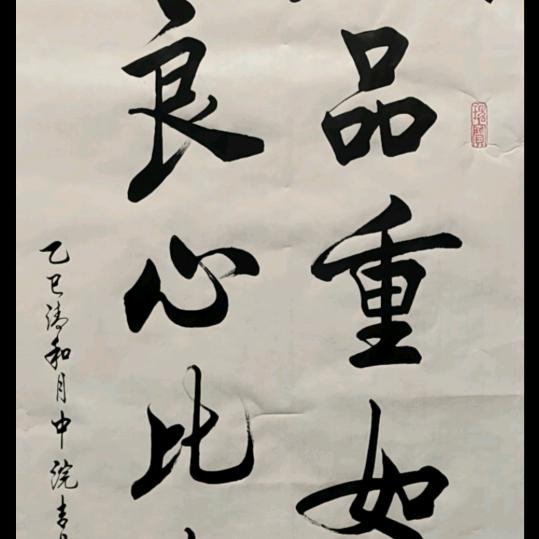 品重如
良心比
乙巳清和月中浣书